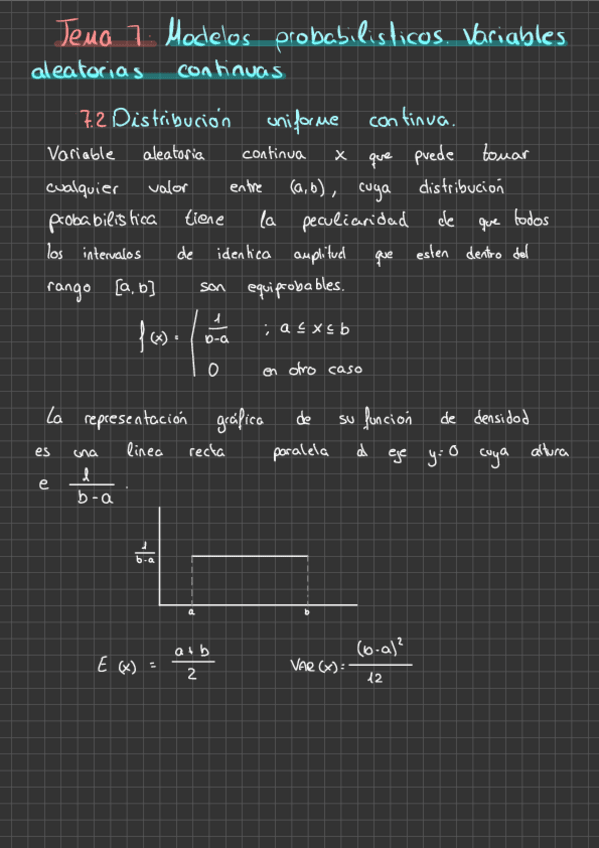 Tema 7. Modelos probabilisticos. Variables
aleatorias continuas
7.2 Distribución uniforme continua.
Variable aleatoria continua x que puede tomar
cualquier valor entre (a,b), cuya distribución
probabilistica tiene la peculiaridad de que todos
los intervalos de identica amplitud que esten dentro del
rango [a,b] son equiprobables.
f(x) = 1/b-a ; a ≤ x ≤ b
0 en otro caso
La representación gráfica de su función de densidad
es una linea recta paralela al eje y=0 cuya altura
e 1/b-a.
1/b-a
a b
E (x) = a+b/2 VAR(x)= (b-a)²/12